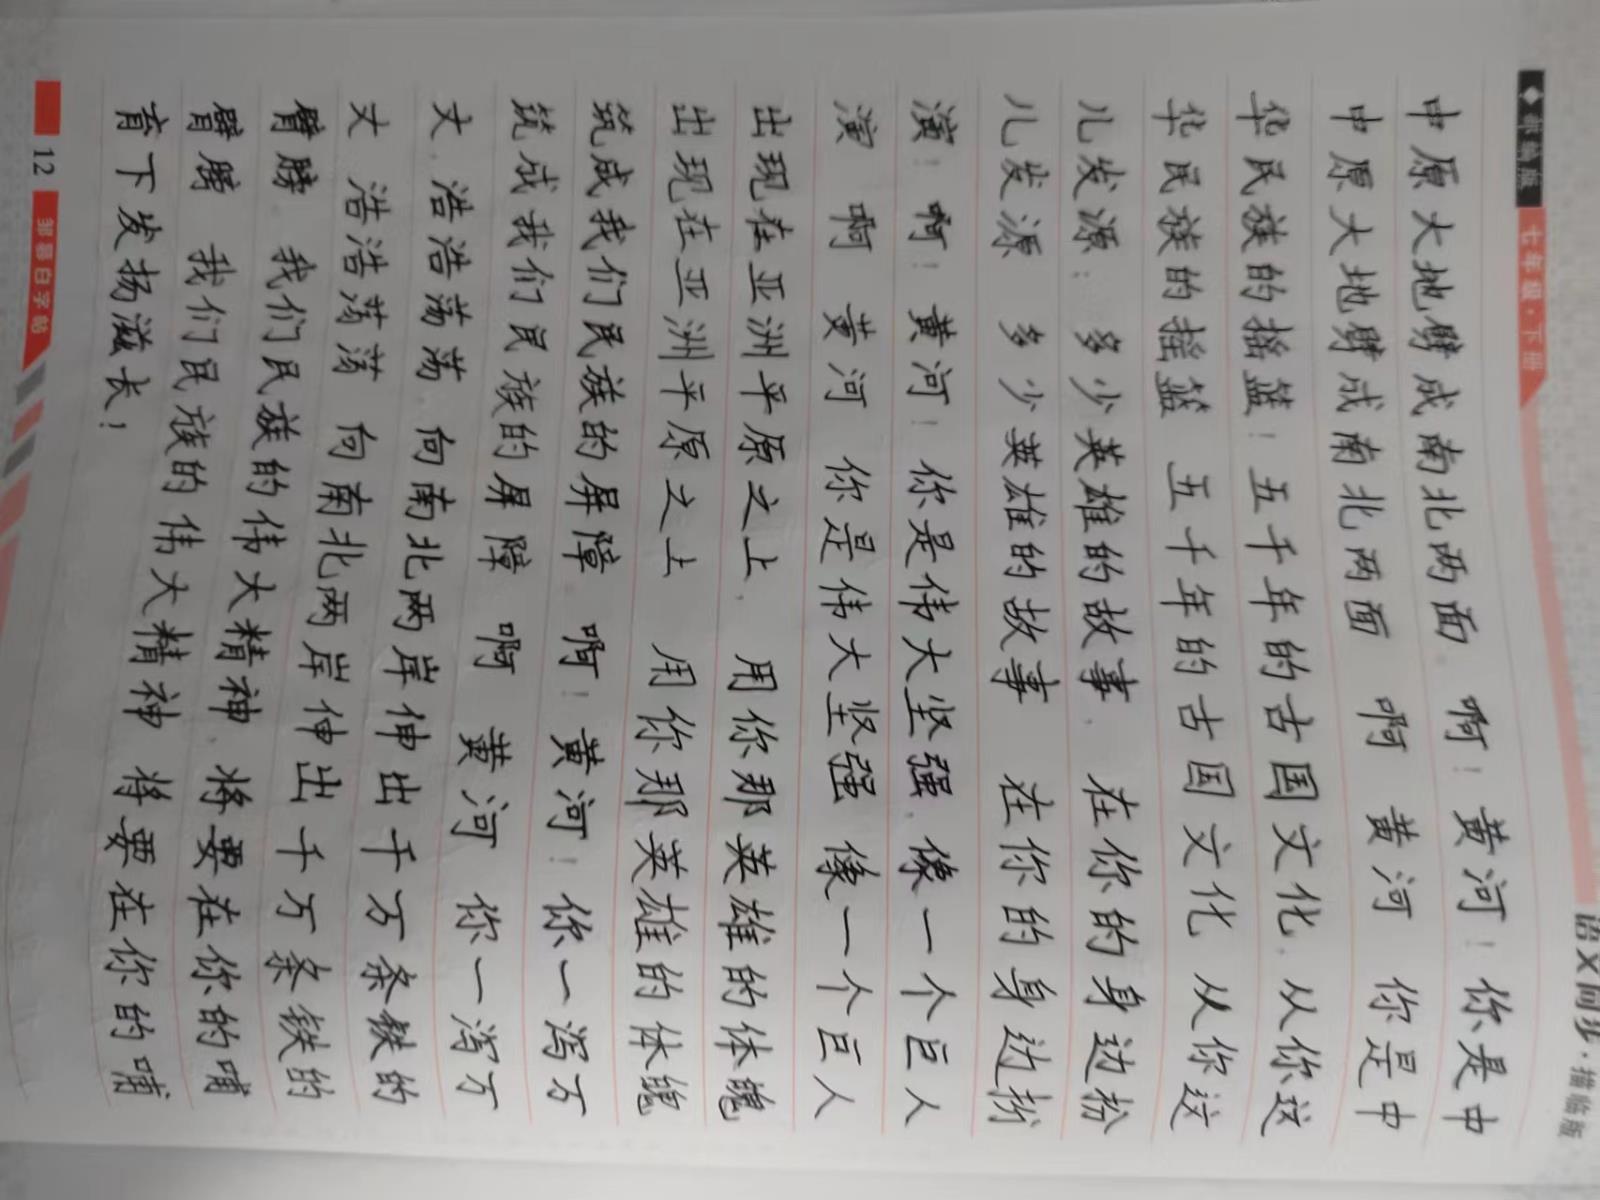 部编版 七年级·下册 语文同步·描临版
中原大地劈成南北两面。啊！黄河！你是中
中原大地劈成南北两面 啊 黄河 你是中
华民族的摇篮！五千年的古国文化，从你这
华民族的摇篮 五千年的古国文化 从你这
儿发源；多少英雄的故事，在你的身边扮
儿发源 多少英雄的故事 在你的身边扮
演！啊！黄河！你是伟大坚强，像一个巨人
演 啊 黄河 你是伟大坚强 像一个巨人
出现在亚洲平原之上，用你那英雄的体魄
出现在亚洲平原之上 用你那英雄的体魄
筑成我们民族的屏障。啊！黄河！你一泻万
筑成我们民族的屏障 啊 黄河 你一泻万
丈，浩浩荡荡，向南北两岸伸出千万条铁的
丈 浩浩荡荡 向南北两岸伸出千万条铁的
臂膀。我们民族的伟大精神，将要在你的哺
臂膀 我们民族的伟大精神 将要在你的哺
育下发扬滋长！
12 邹慕白字帖